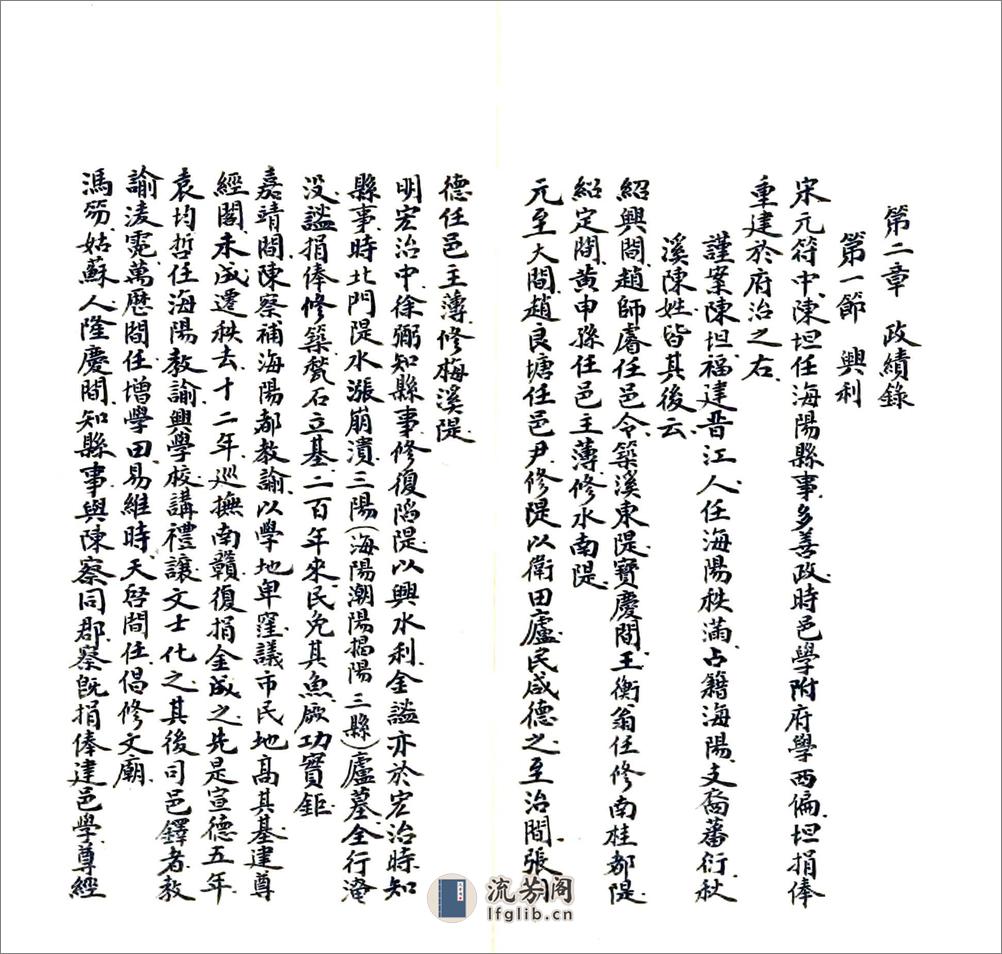 第二章 政績錄
第一節 興利
宋元符中陳坦任海陽縣事多善政時邑學附府學西偏坦捐俸
重建於府治之右
謹案陳坦福建晋江人任海陽秩滿占籍海陽支裔蕃衍秋
溪陳姓皆其後云
紹興間趙師睿任邑令築溪東隄寶慶間王衡翁任修南桂都隄
紹定間黄申孫任邑主薄修水南隄
元至大間趙良塘任邑尹修隄以衛田廬民咸德之至治間張
德任邑主薄修梅溪隄
明宏治中徐弼知縣事修復陷隄以興水利金謐亦於宏治時知
縣事時北門隄水漲崩潰三陽(海陽潮陽揭陽三縣)廬墓全行淹
没謐捐俸修築甃石立基二百年來民免其魚厥功實鉅
嘉靖間陳察補海陽都教諭以學地卑窪議市民地高其基建尊
經閣未成遷秩去十二年巡撫南贛復捐金成之先是宣德五年
袁均哲任海陽教諭興學校講禮讓文士化之其後司邑鐸者教
諭淩霓萬歷間任增學田易維時天啓間任倡修文廟
馮笏姑蘇人隆慶間知縣事與陳察同郡察旣捐俸建邑學尊經
流芳阁
lfglib.cn